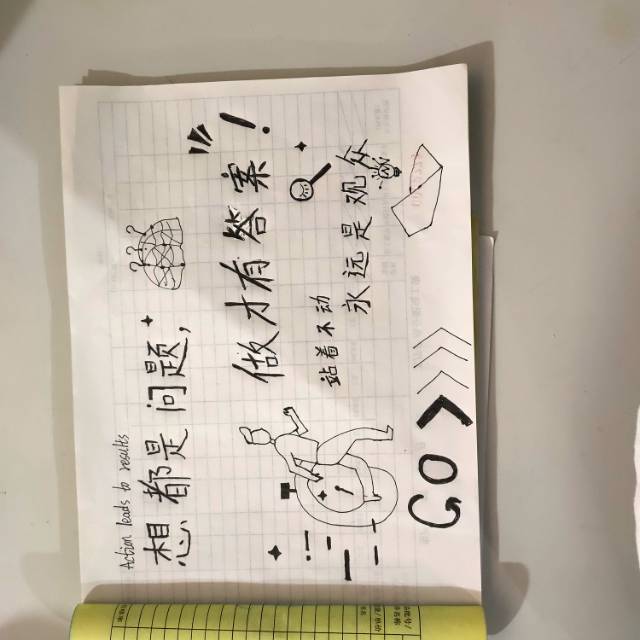 Action leads to results
想都是问题,
做才有答案!
站着不动
永远是观众
GO